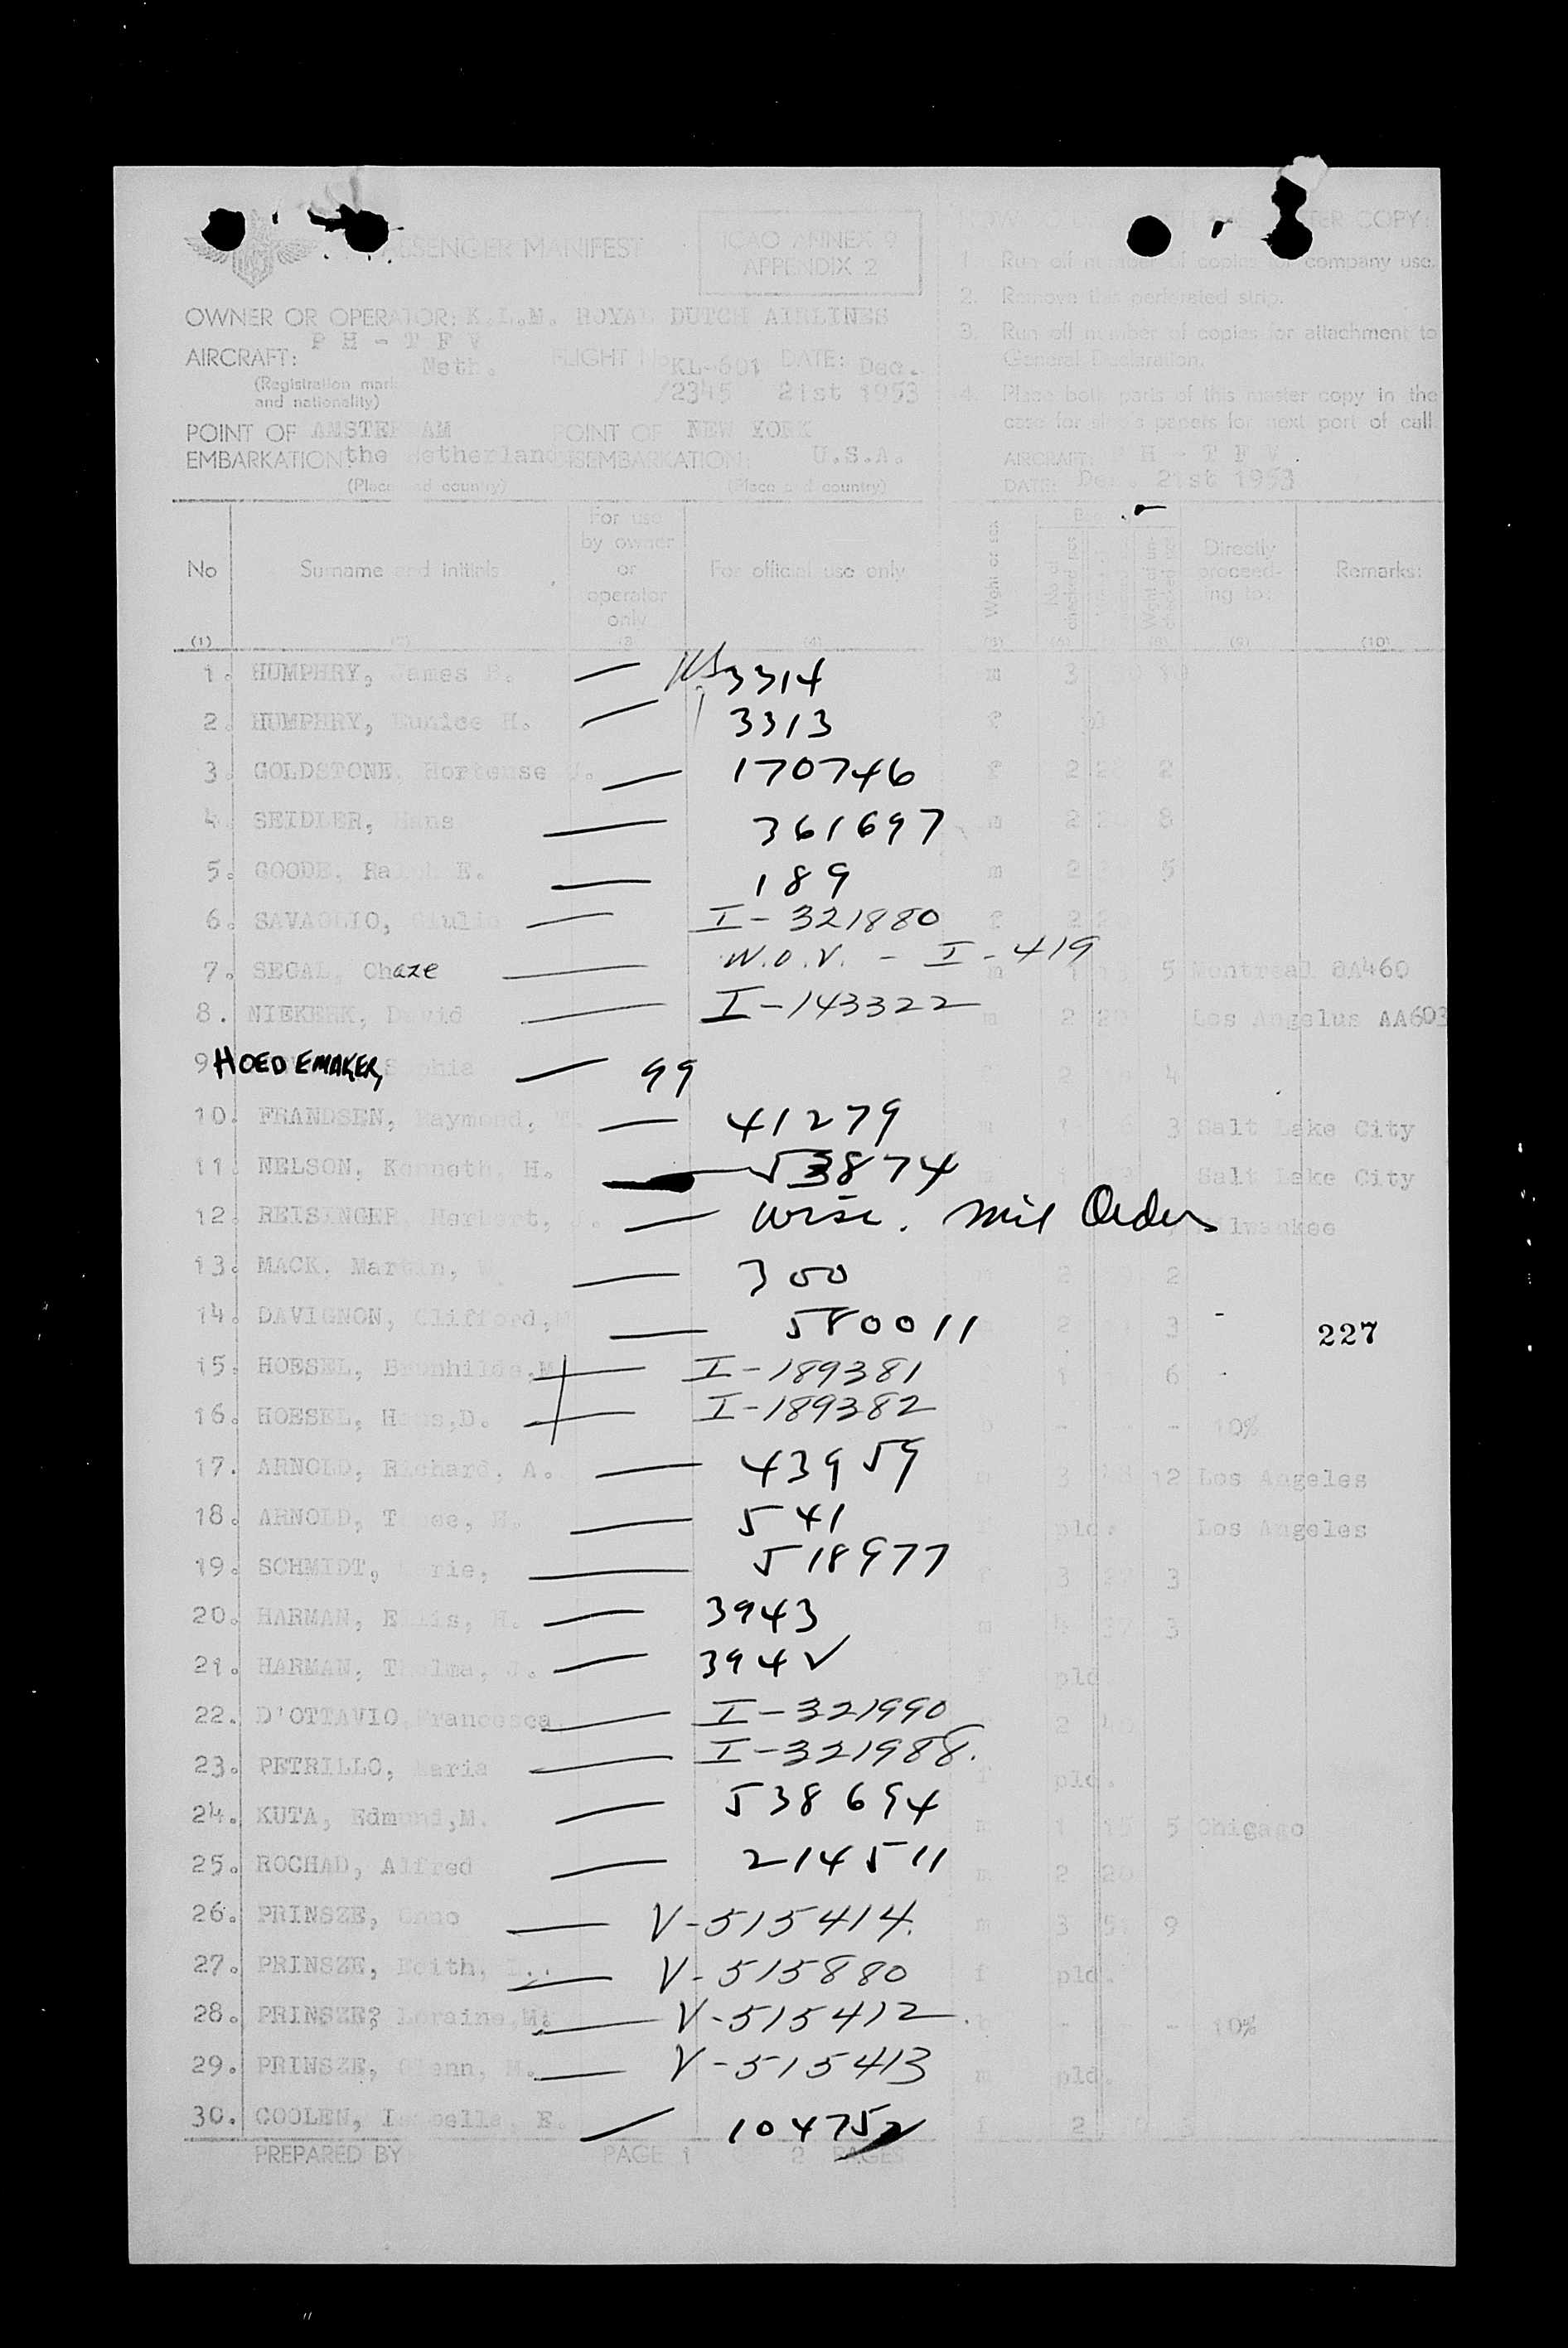 PASSENGER MANIFEST
ICAO ANNEX 9
APPENDIX 2
COPY
1. Run off number of copies for company use.
2. Remove this perforated strip.
3. Run off number of copies for attachment to
General Declaration.
4. Place both parts of this master copy in the
case for ship's papers for next port of call.
OWNER OR OPERATOR: K.L.M. ROYAL DUTCH AIRLINES
AIRCRAFT: PH - TFV Neth. FLIGHT No KL-601/2345 DATE: Dec. 21st 1953
(Registration marks
and nationality)
POINT OF EMBARKATION: AMSTERDAM the Netherlands
(Place and country)
POINT OF DISEMBARKATION: NEW YORK U.S.A.
(Place and country)
AIRCRAFT: PH - TFV
DATE: Dec. 21st 1953
No
Surname and initials
For use by owner or operator only
For official use only
Directly proceeding to:
Remarks:
(1) (2) (3) (4) (5) (6) (8) (9) (10)
1. HUMPHRY, James B. — 3314 m 3
2. HUMPHRY, Eunice H. — 3313 f
3. GOLDSTONE, Hortense — 170746 f 2 2
4. SEIDLER, Hans — 361697 m 2 8
5. GOODE, Ralph E. — 189 m 2 5
6. SAVAGLIO, Giulio — I-321880 f 2
7. SEGAL, Chaze — W.O.V. - I-419 m 1 5 Montreal
8. NIEKERK, David — I-143322 m 2 20 Los Angelus AA603
9. HOEDEMAKER, Sophia — 99 2 4
10. FRANDSEN, Raymond, T. — 41279 m 1 3 Salt Lake City
11. NELSON, Kenneth, H. — 53874 1 Salt Lake City
12. REISINGER, Herbert, J. — Wisc. Mil Order Milwaukee
13. MACK, Martin, — 300 2 2
14. DAVIGNON, Clifford, — 580011 2 3 -
227
15. HOESEL, Brunhilde,M — I-189381 1 6 -
16. HOESEL, Hans,D. — I-189382 - - 10%
17. ARNOLD, Richard, A. — 43959 m 3 12 Los Angeles
18. ARNOLD, H. — 541 f pld. Los Angeles
19. SCHMIDT, — 518977 f 3 27 3
20. HARMAN, Ellis, H. — 3943 m 4 37 3
21. HARMAN, Thelma, J. — 3942 pld
22. D'OTTAVIO, Francesca — I-321990 2 40
23. PETRILLO, Maria — I-321988. f pld.
24. KUTA, Edmund,M. — 538694 m 1 15 5 Chicago
25. ROCHAD, Alfred — 214511 m 2 20
26. PRINSZE, Onno — V-515414. m 3 9
27. PRINSZE, Edith, L.. — V-515880 f pld.
28. PRINSZE, Loraine,M. — V-515412. - - 10%
29. PRINSZE, Glenn, M. — V-515413 m pld.
30. COOLEN, Isabella, E. — 104752 f 2
PREPARED BY PAGE 1 2 PAGES